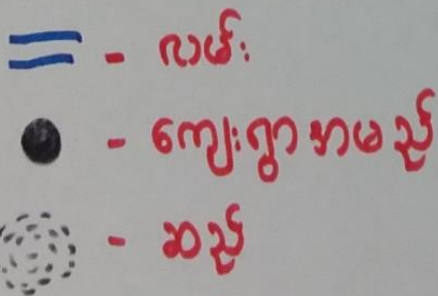 - လမ်း
- ကျေးရွာအမည်
- ဆည်